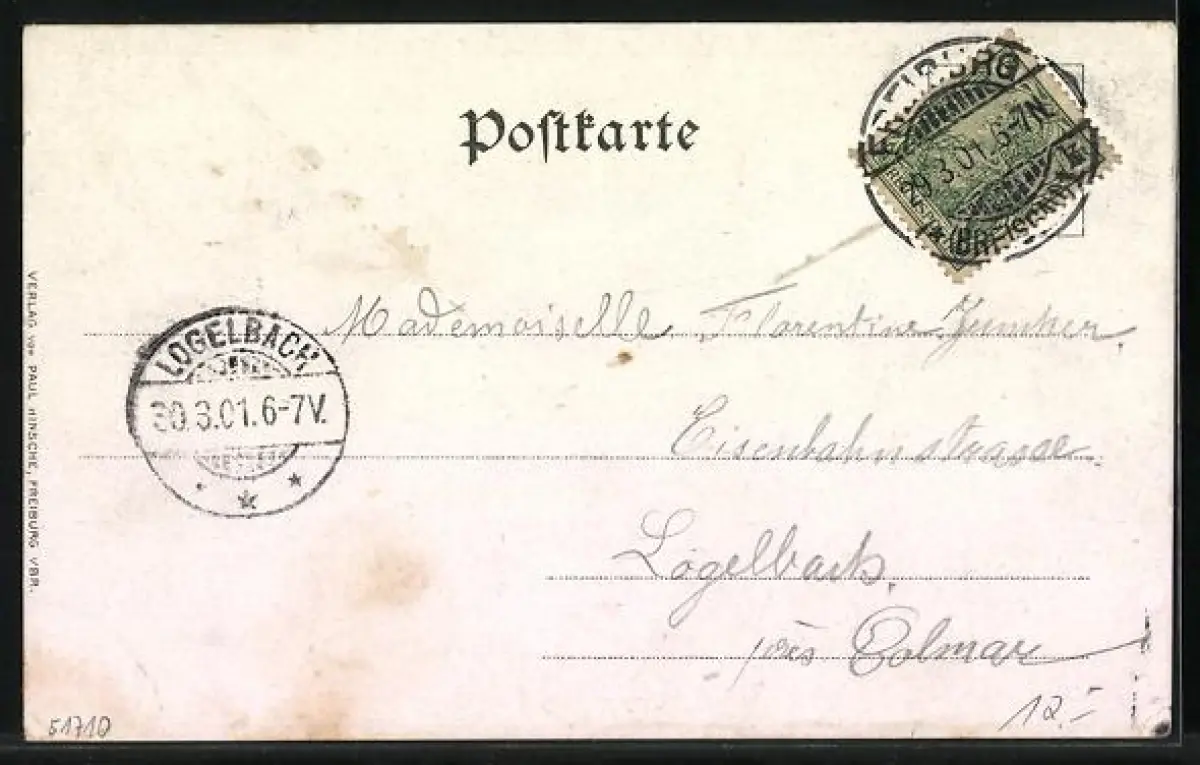 Postkarte
FREIBURG
29.3.01.6-7N.
* (BREISGAU)
LOGELBACH
30.3.01.6-7V.
* * *
Mademoiselle Florentine Juncker,
Eisenbahnstrasse.
Logelbach,
près Colmar
VERLAG von PAUL HINSCHE, FREIBURG i/BR.
51710
12.-